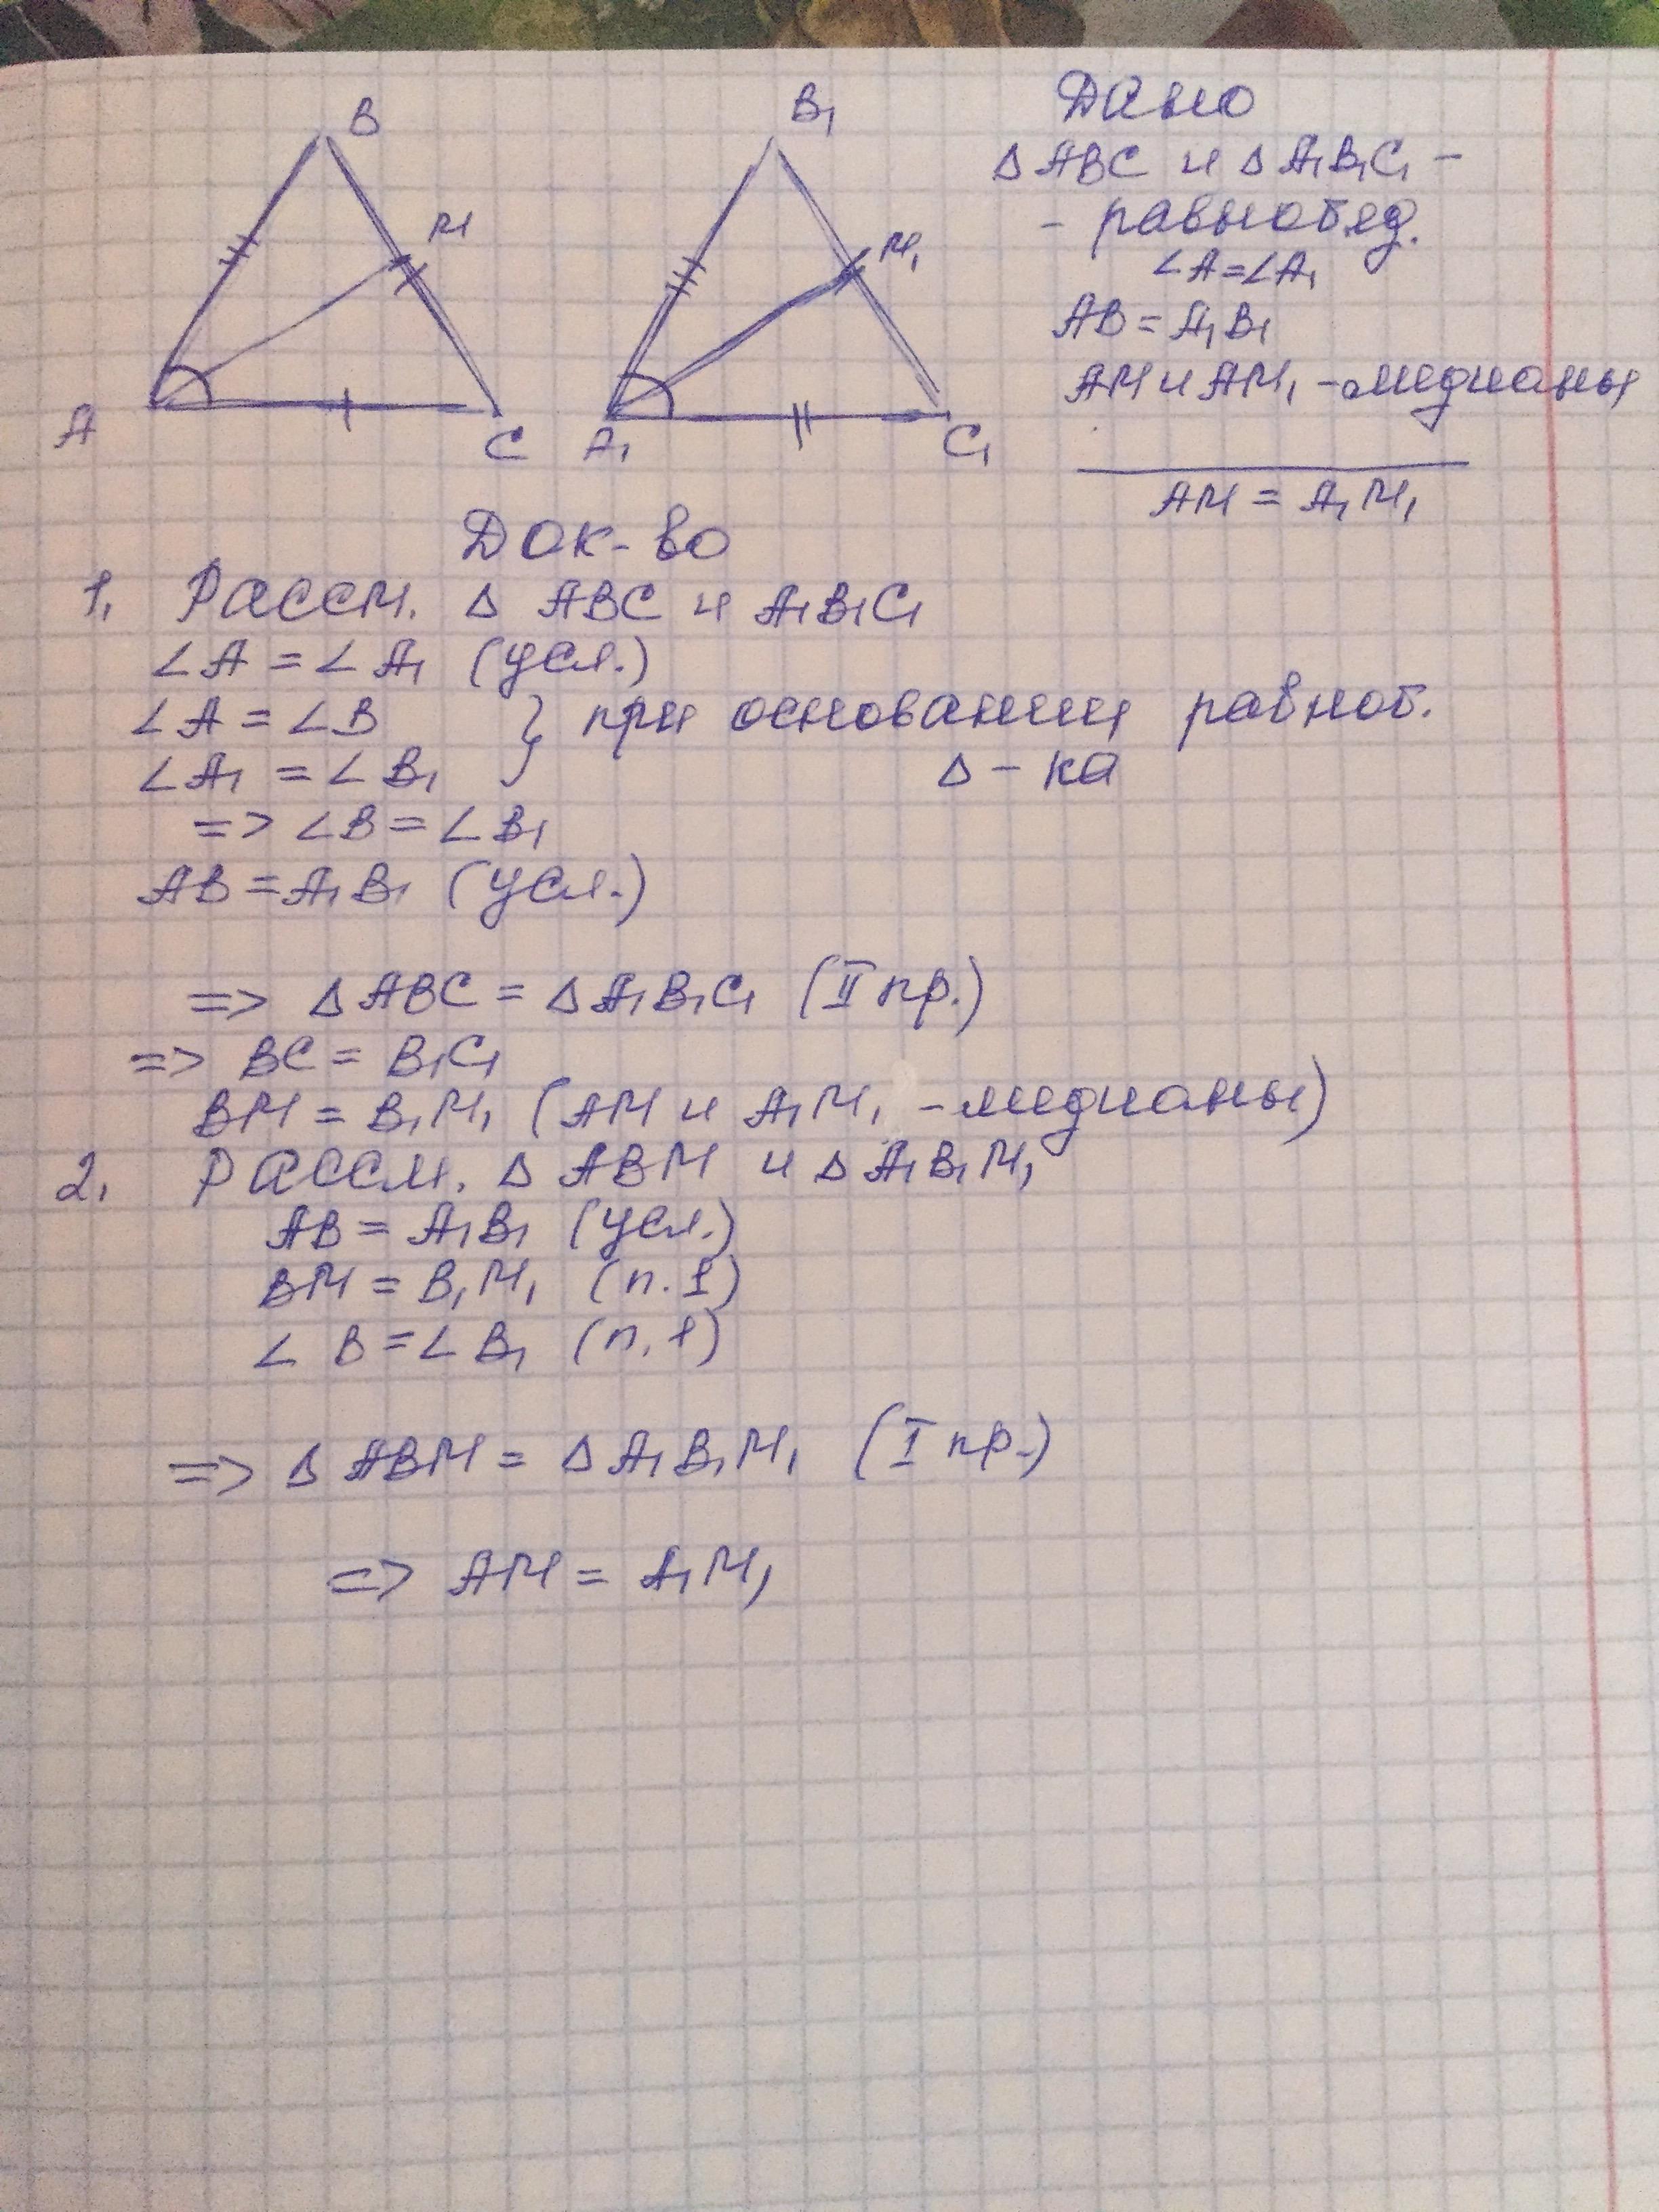 B
B₁
M
M₁
A
C
A₁
C₁
Дано
Δ ABC и Δ A₁B₁C₁ –
– равнобед.
∠A = ∠A₁
AB = A₁B₁
AM и AM₁ – медианы
AM = A₁M₁
Док-во
1. Рассм. Δ ABC и A₁B₁C₁
∠A = ∠A₁ (усл.)
∠A = ∠B } при основании равноб.
∠A₁ = ∠B₁ Δ-ка
=> ∠B = ∠B₁
AB = A₁B₁ (усл.)
=> Δ ABC = Δ A₁B₁C₁ (II пр.)
=> BC = B₁C₁
BM = B₁M₁ (AM и A₁M₁ – медианы)
2. Рассм. Δ ABM и Δ A₁B₁M₁
AB = A₁B₁ (усл.)
BM = B₁M₁ (п. 1)
∠ B = ∠ B₁ (п. 1)
=> Δ ABM = Δ A₁B₁M₁ (I пр.)
=> AM = A₁M₁